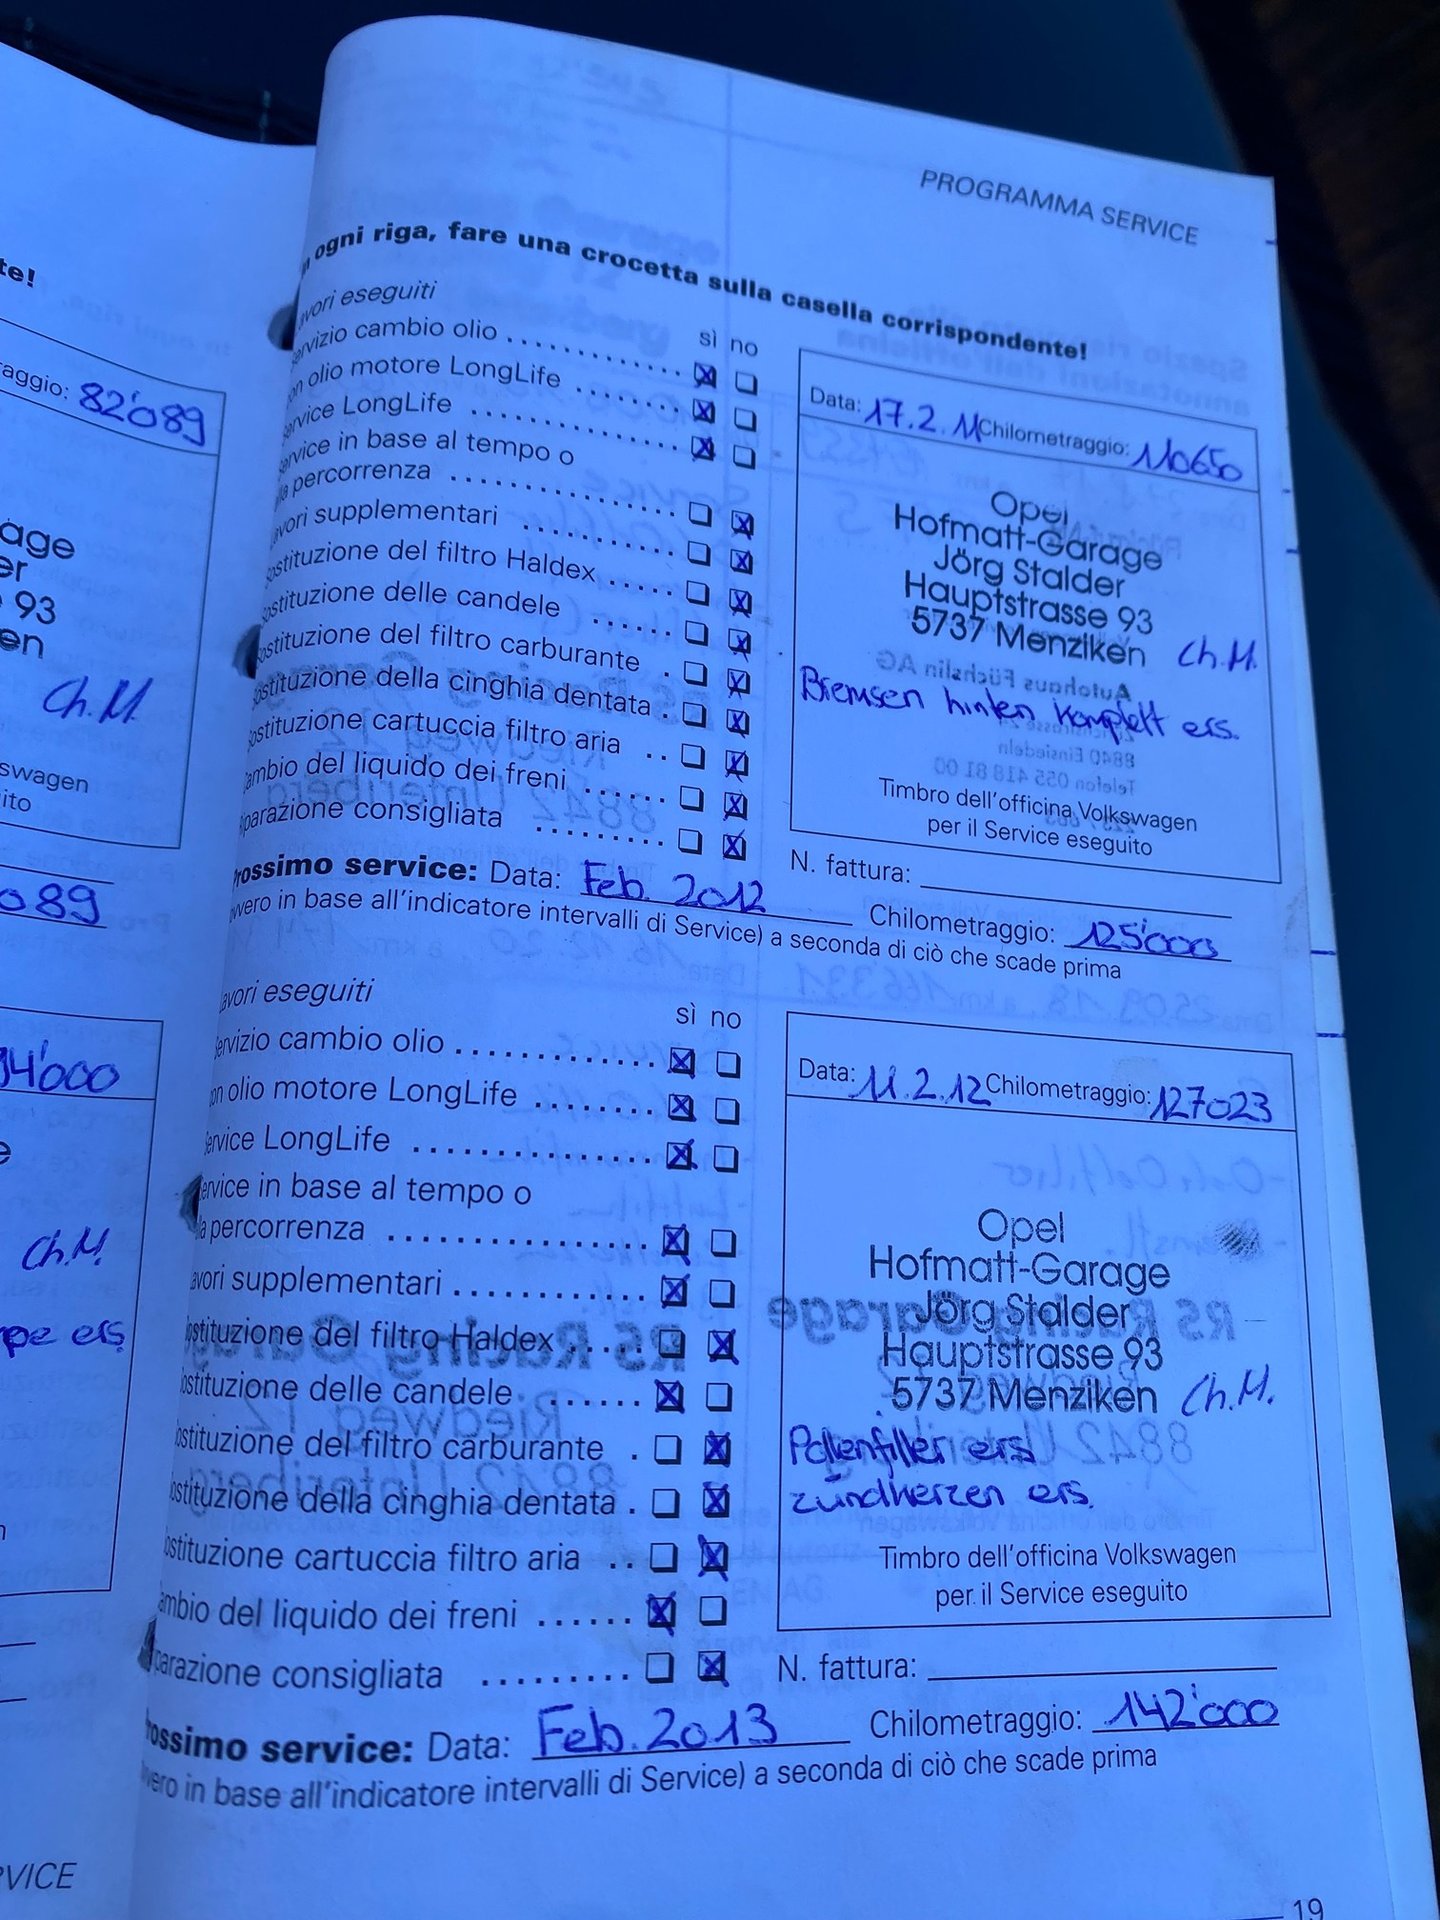 PROGRAMMA SERVICE
ogni riga, fare una crocetta sulla casella corrispondente!
avori eseguiti
sì no
ervizio cambio olio
on olio motore LongLife
ervice LongLife
ervice in base al tempo o
la percorrenza
avori supplementari
ostituzione del filtro Haldex
ostituzione delle candele
ostituzione del filtro carburante
ostituzione della cinghia dentata
ostituzione cartuccia filtro aria
ambio del liquido dei freni
parazione consigliata
Data: 17.2.11 Chilometraggio: 110650
Opel
Hofmatt-Garage
Jörg Stalder
Hauptstrasse 93
5737 Menziken Ch.M.
Bremsen hinten komplett ers.
Timbro dell'officina Volkswagen
per il Service eseguito
N. fattura:
rossimo service: Data: Feb. 2012 Chilometraggio: 125'000
vvero in base all'indicatore intervalli di Service) a seconda di ciò che scade prima
avori eseguiti
sì no
ervizio cambio olio
on olio motore LongLife
ervice LongLife
ervice in base al tempo o
la percorrenza
avori supplementari
ostituzione del filtro Haldex
ostituzione delle candele
ostituzione del filtro carburante
ostituzione della cinghia dentata
ostituzione cartuccia filtro aria
ambio del liquido dei freni
parazione consigliata
Data: 11.2.12 Chilometraggio: 127023
Opel
Hofmatt-Garage
Jörg Stalder
Hauptstrasse 93
5737 Menziken Ch.M.
Pollenfilter ers
zündkerzen ers.
Timbro dell'officina Volkswagen
per il Service eseguito
N. fattura:
rossimo service: Data: Feb. 2013 Chilometraggio: 142'000
vero in base all'indicatore intervalli di Service) a seconda di ciò che scade prima
19
te!
aggio: 82'089
age
er
93
en
Ch.M.
swagen
ito
089
94'000
e
Ch.M.
pe ers
RVICE